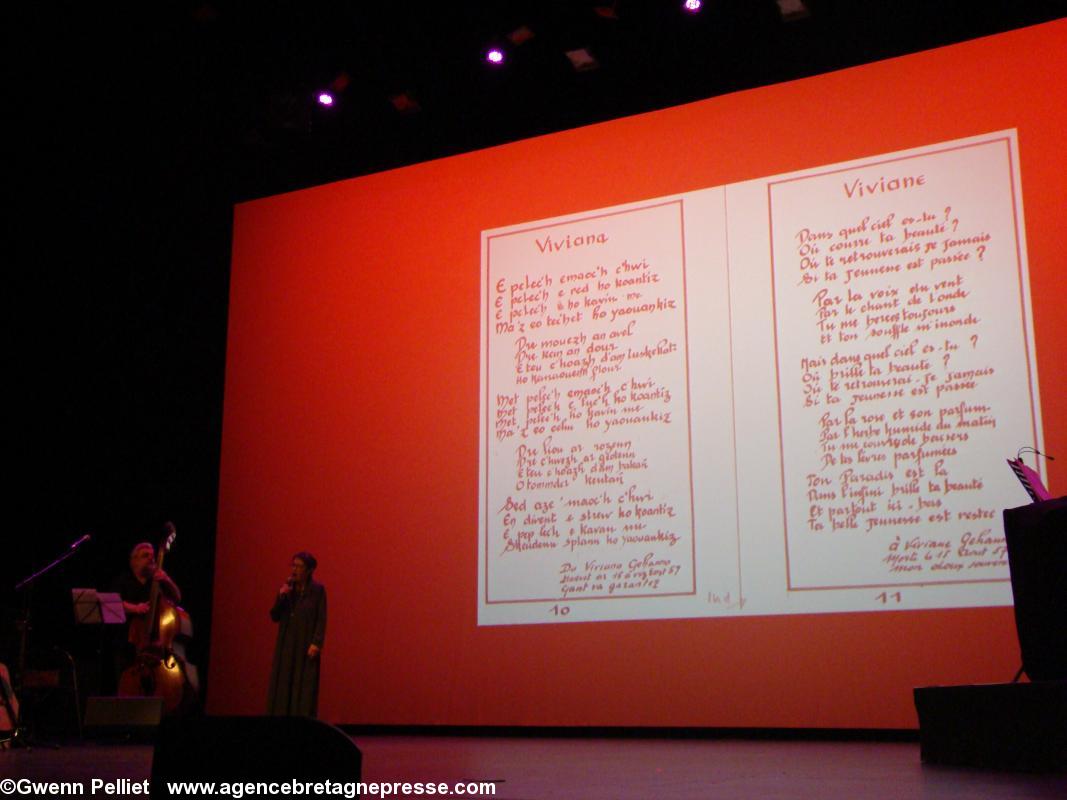 Viviana
E pelec'h emaoc'h c'hwi
E pelec'h e red ho koantiz
E pelec'h ho kavin me
Ma'z eo tec'het ho yaouankiz
Dre mouezh an avel
Dre kan an dour
E teu c'hoazh d'am luskellat
Ho kanaouenn flour
Met pelec'h emaoc'h c'hwi
Met pelec'h e luc'h ho koantiz
Met pelec'h ho kavin me
Ma'z eo echu ho yaouankiz
Dre liou ar rozenn
Dre c'hwezh ar
E teu c'hoazh d'am bokañ
O tommder kentañ
Sed aze 'maoc'h c'hwi
En divent e strew ho koantiz
E pep lec'h e kavan me
Skedenn splann ho yaouankiz
Da Viviana Gehanno
Marvet ar 15 a viz Eost 57
Gant va garantez
10
Viviane
Dans quel ciel es-tu ?
Où courre ta beauté ?
Où te retrouverais je jamais
Si ta jeunesse est passée ?
Par la voix du vent
Par le chant de l'onde
Tu me berces toujours
Et ton souffle m'inonde
Mais dans quel ciel es-tu ?
Où brille ta beauté ?
Où te retrouverai-je jamais
Si ta jeunesse est passée
Par la rose et son parfum
Par l'herbe humide du matin
Tu me couvres de baisers
De tes lèvres parfumées
Ton Paradis est là
Dans l'infini brille ta beauté
Et partout ici-bas
Ta belle jeunesse est restée
à Viviane Gehanno
Morte le 15 Août 57
Mon doux souvenir
11
©Gwenn Pelliet www.agencebretagnepresse.com